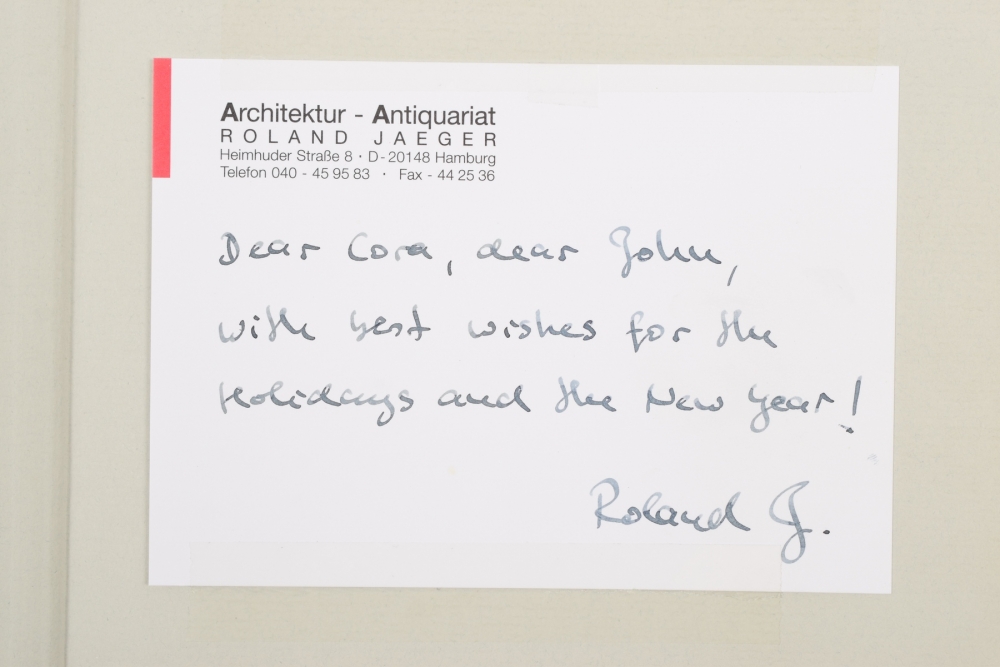 Architektur - Antiquariat
ROLAND JAEGER
Heimhuder Straße 8 · D-20148 Hamburg
Telefon 040 - 45 95 83 · Fax - 44 25 36
Dear Cora, dear John,
with best wishes for the
Holidays and the New Year!
Roland J.